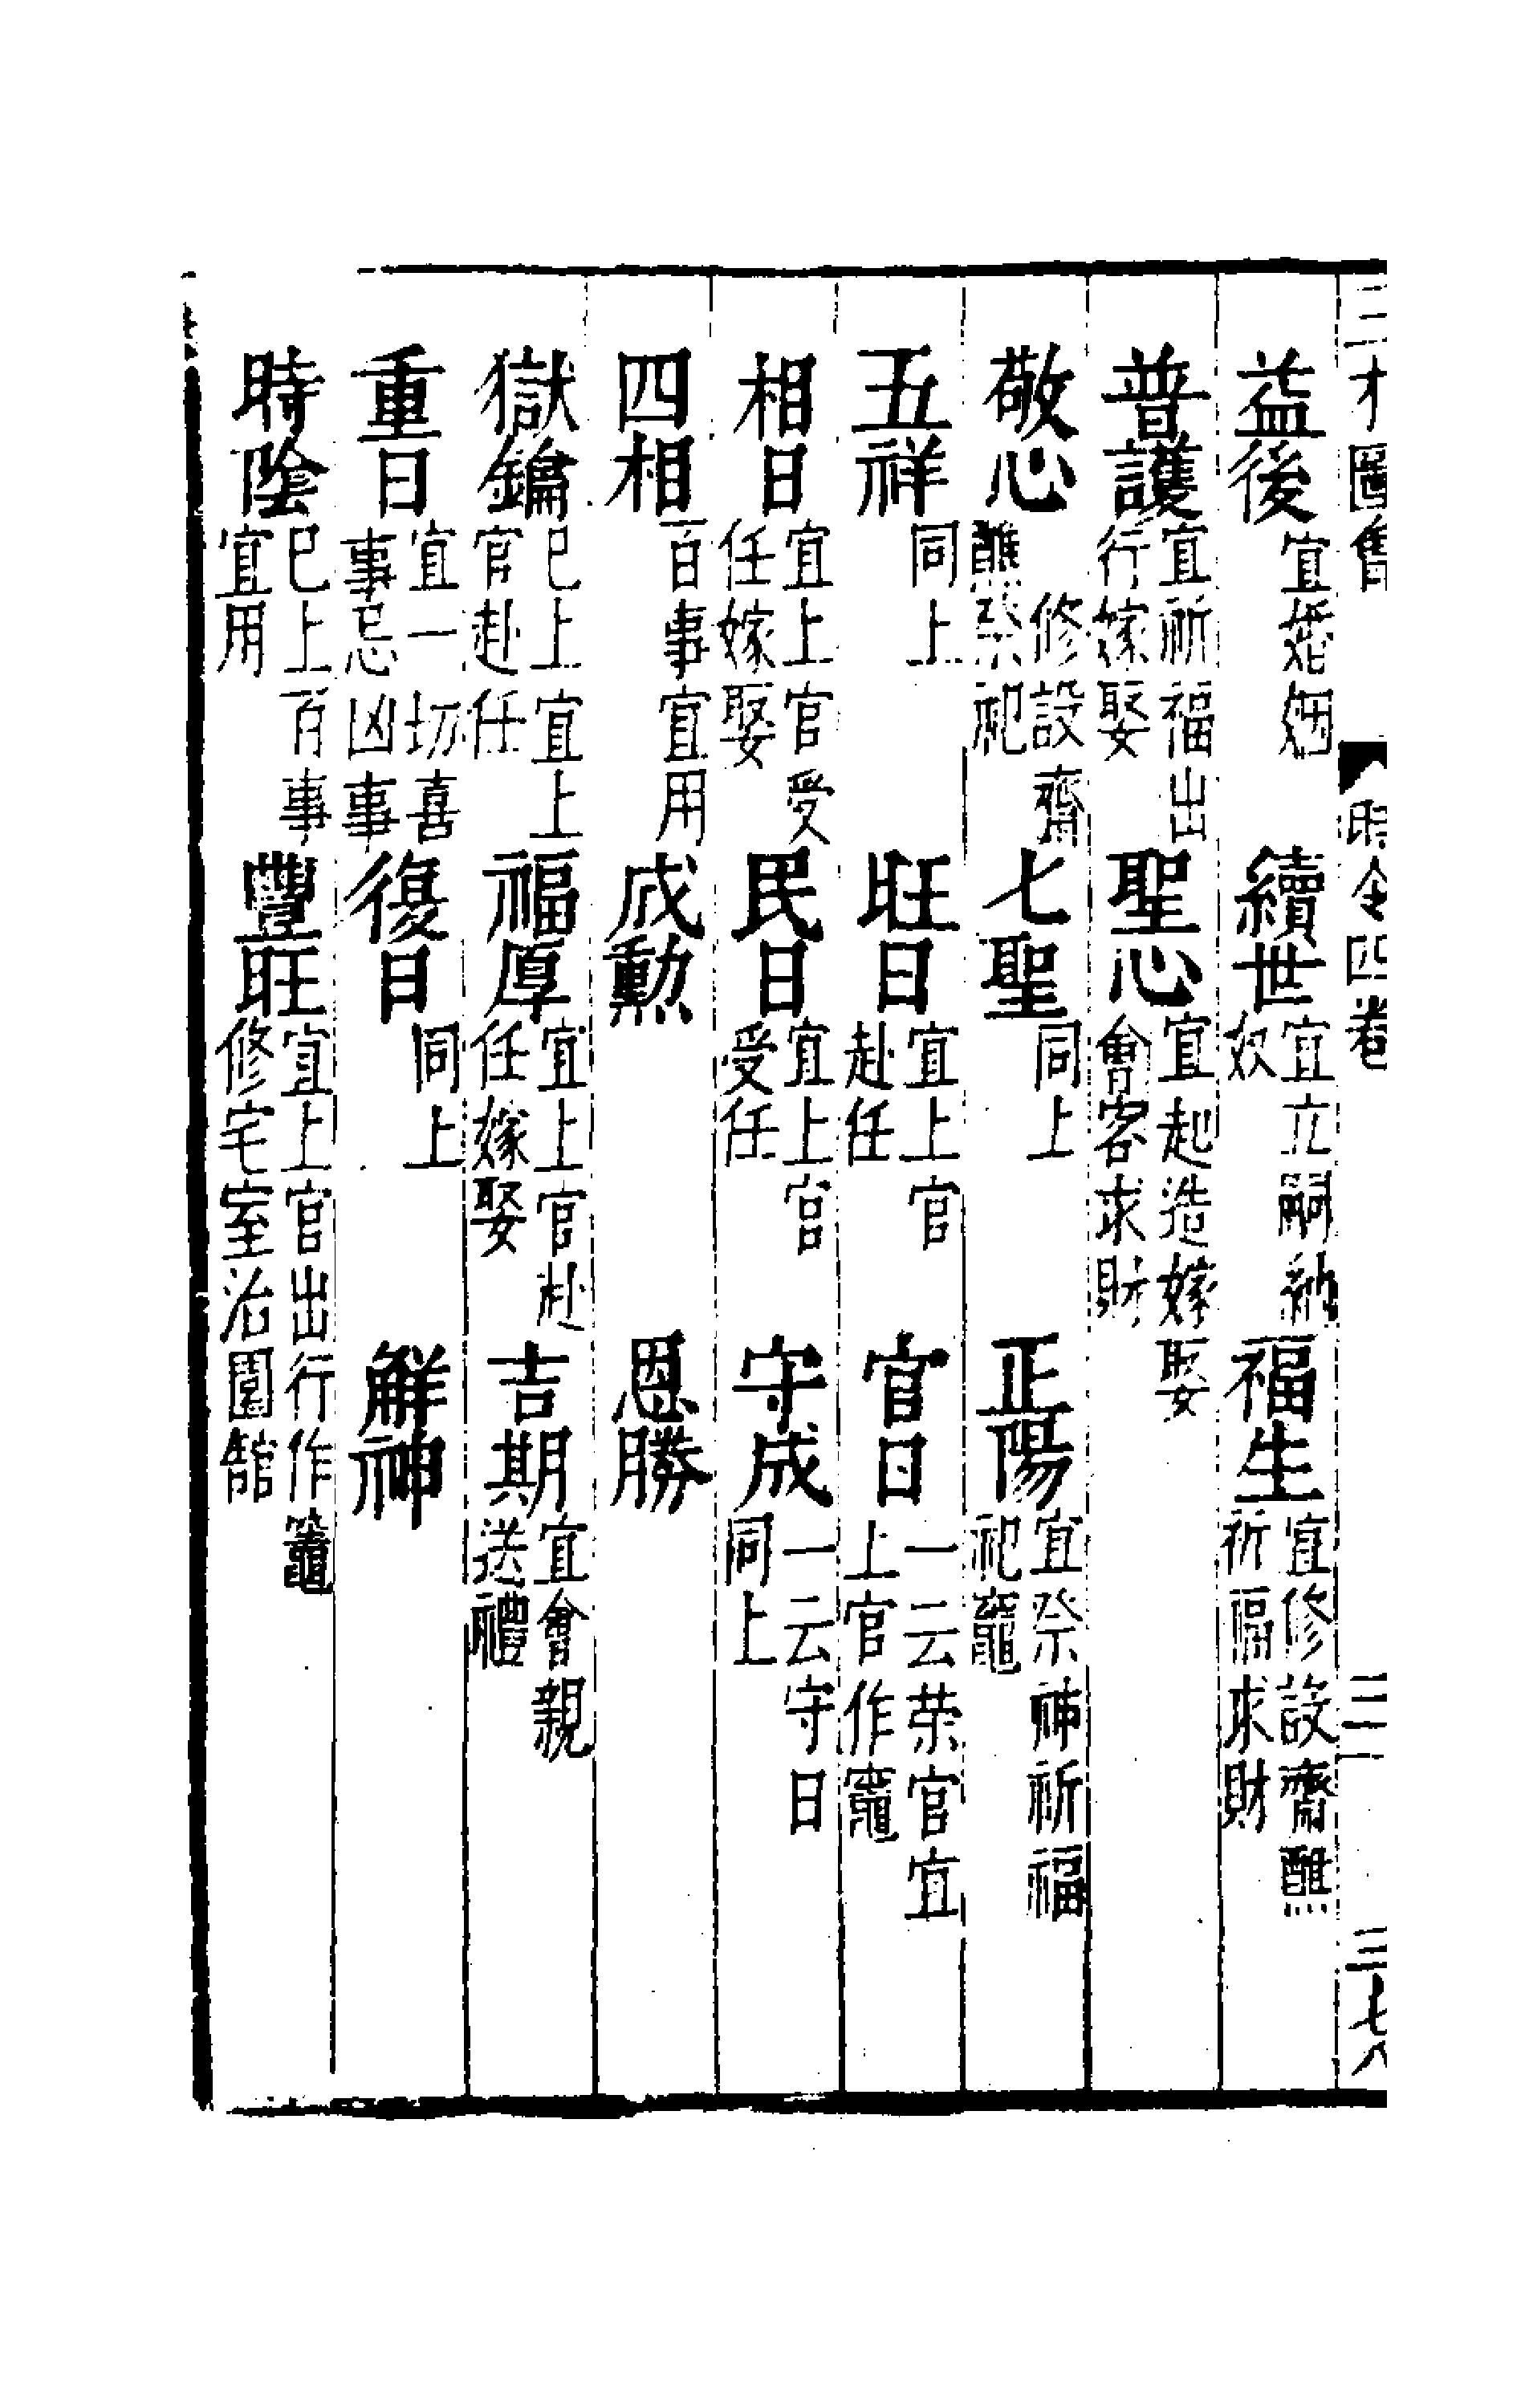 三才圖會 時令四卷 三二 三七八
益後 宜婚姻 續世 宜立嗣納奴 福生 宜修設齋醮祈福求財
普護 宜祈福出行嫁娶 聖心 宜起造嫁娶會客求財
敬心 修設齋醮祭祀 七聖 同上 正陽 宜祭神祈福祀竈
五祥 同上 旺日 宜上官赴任 官日 一云荣官宜上官作竈
相日 宜上官受任嫁娶 民日 宜上官受任 守成 一云守日同上
四相 百事宜用 成勲 恩勝
獄鑰 已上宜上官赴任 福厚 宜上官赴任嫁娶 吉期 宜會親送禮
重日 宜一切喜事忌凶事 復日 同上 解神
時陰 已上百事宜用 豐旺 宜上官出行作竈修宅室治園舘